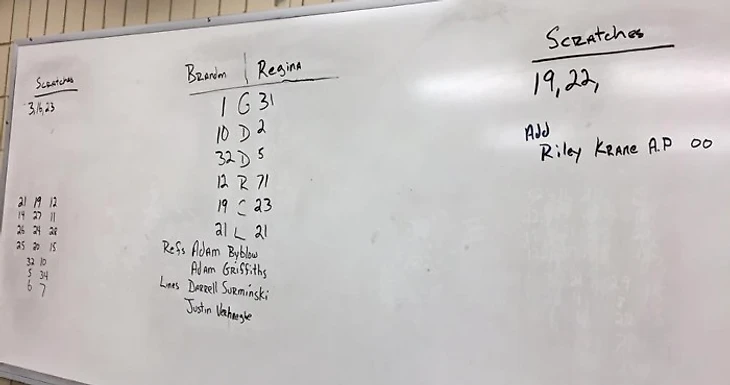 Scratches
3,16,23
21 19 12
14 27 11
26 24 28
25 20 15
32 10
5 34
6 7
Brandon | Regina
1 G 31
10 D 2
32 D 5
12 R 71
19 C 23
21 L 21
Refs Adam Byblow
Adam Griffiths
Lines Darrell Surminski
Justin
Scratches
19, 22,
Add
Riley Krane A.P 00